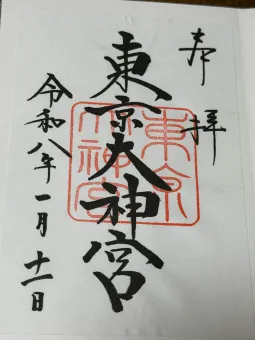 奉拝
東京大神宮
東京大神宮
令和八年一月十一日